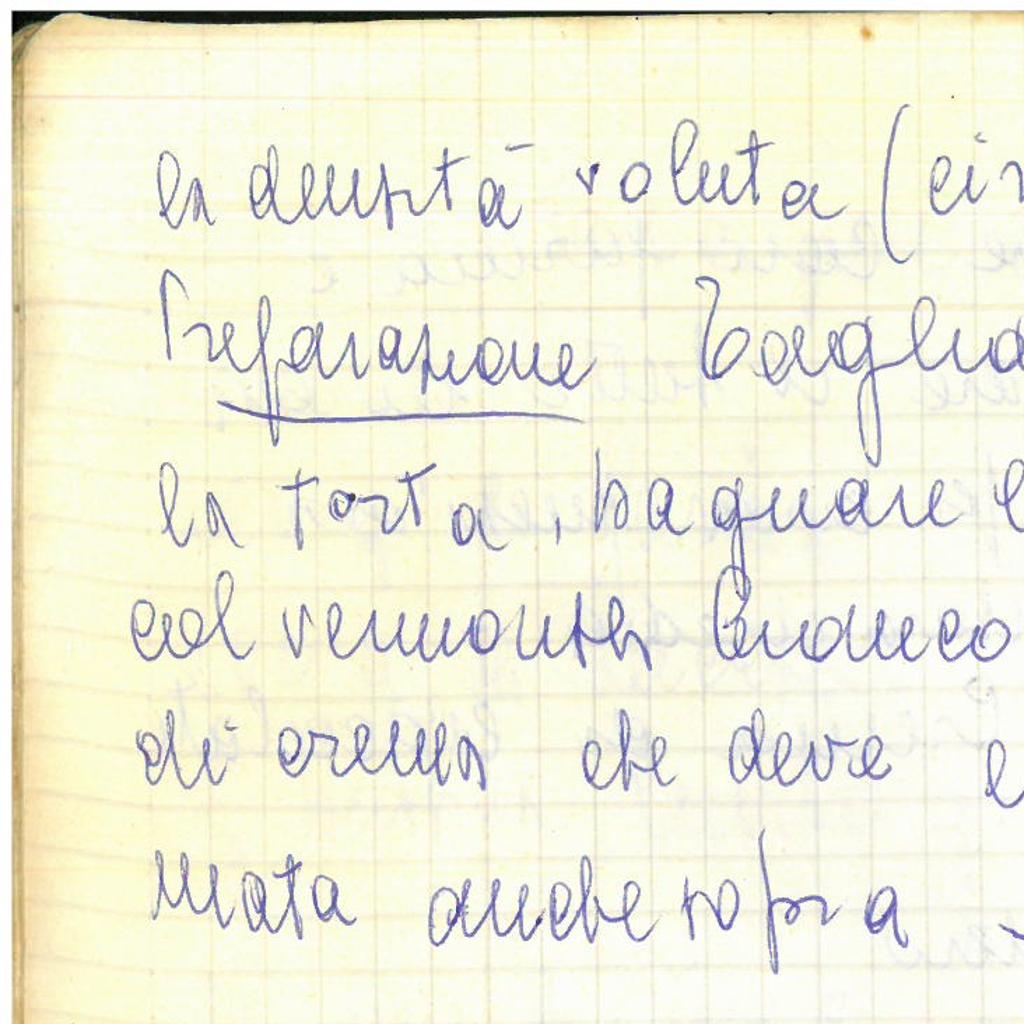 la densità voluta (cir
Preparazione Taglia
la torta, bagnare l
col vermouth bianco
di crema che deve e
mata anche sopra